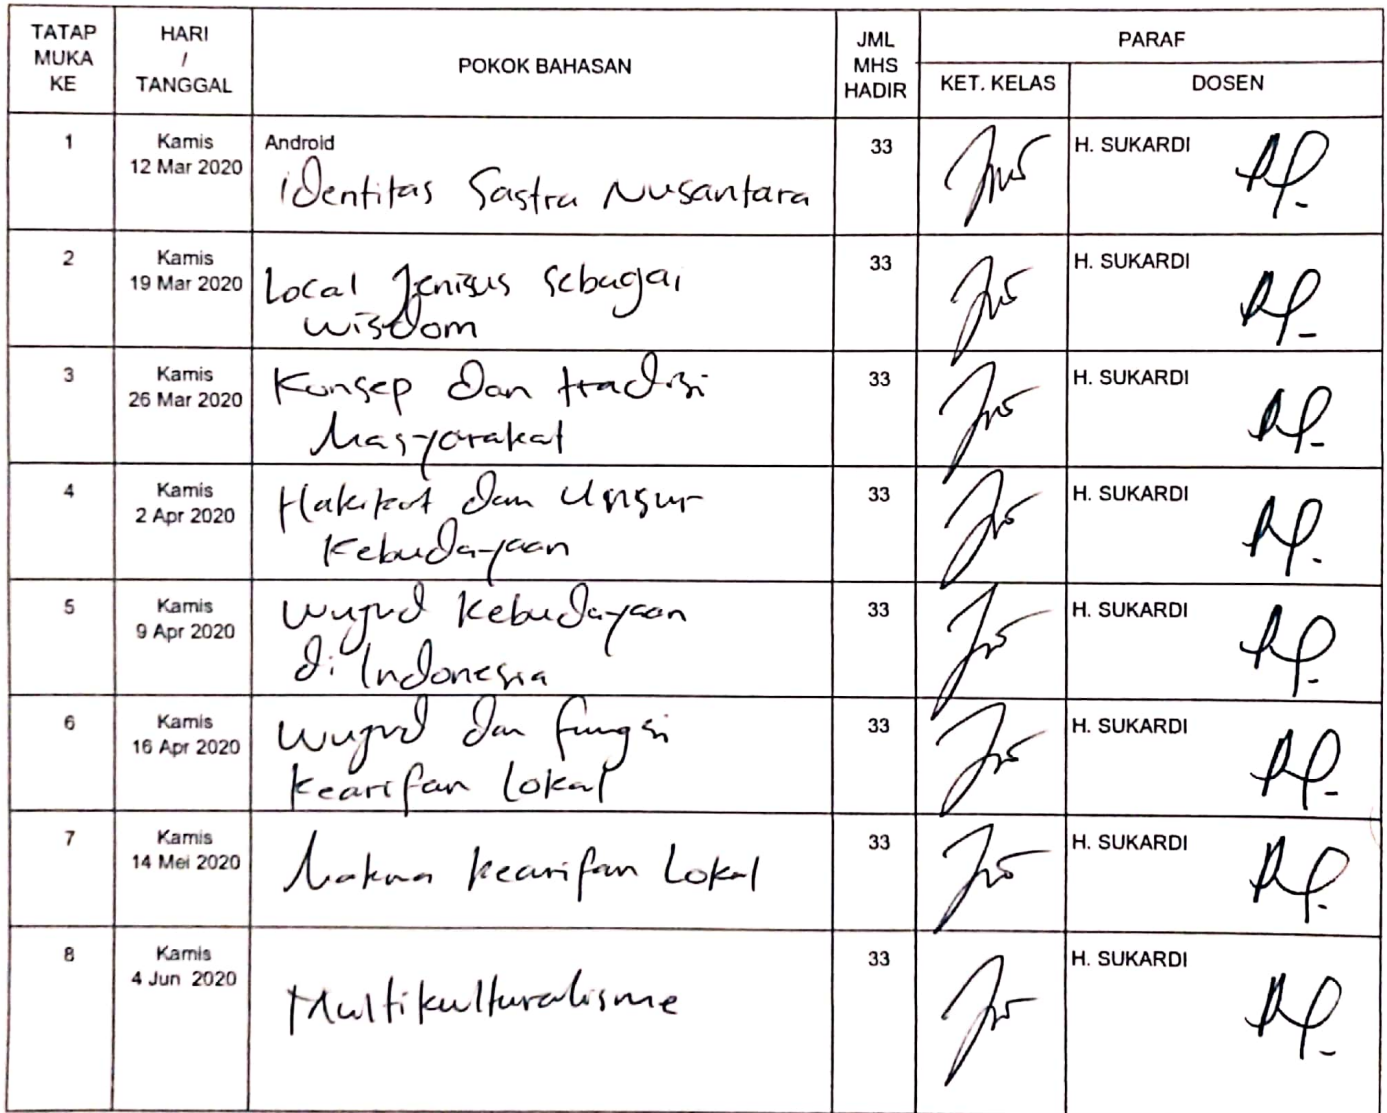 TATAP MUKA KE
HARI / TANGGAL
POKOK BAHASAN
JML MHS HADIR
PARAF
KET. KELAS
DOSEN
1
Kamis
12 Mar 2020
Android
identitas Sastra Nusantara
33
H. SUKARDI
2
Kamis
19 Mar 2020
Local Jenisus sebagai
wisdom
33
H. SUKARDI
3
Kamis
26 Mar 2020
Konsep dan tradisi
Masyarakat
33
H. SUKARDI
4
Kamis
2 Apr 2020
Hakikat dan Unsur
Kebudayaan
33
H. SUKARDI
5
Kamis
9 Apr 2020
wujud Kebudayaan
di Indonesia
33
H. SUKARDI
6
Kamis
16 Apr 2020
wujud dan fungsi
kearifan lokal
33
H. SUKARDI
7
Kamis
14 Mei 2020
Makna kearifan Lokal
33
H. SUKARDI
8
Kamis
4 Jun 2020
Multikulturalisme
33
H. SUKARDI